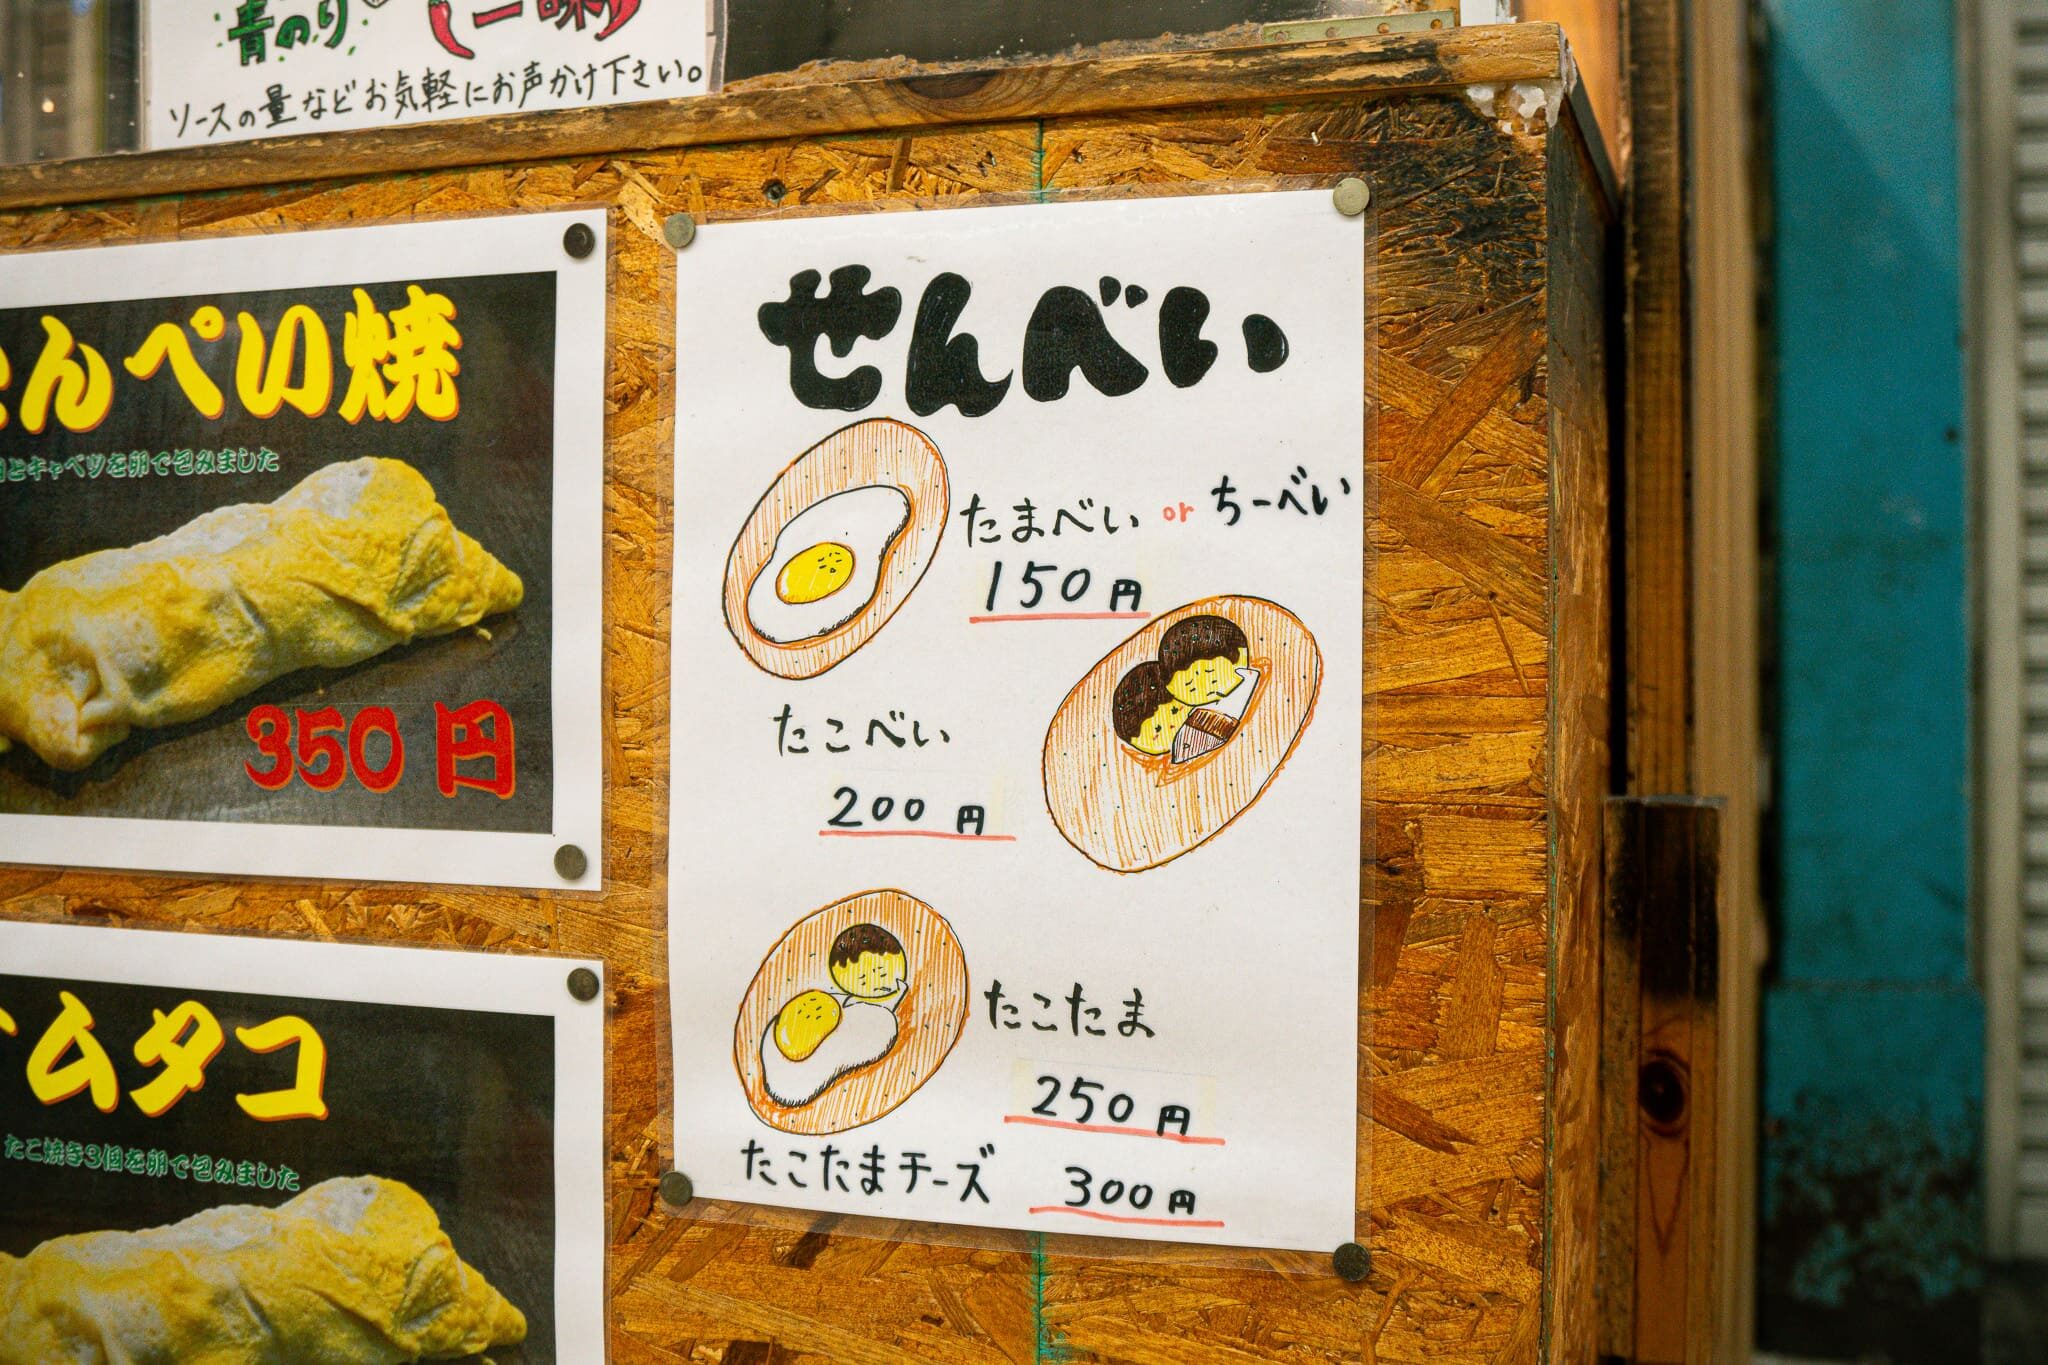 青のり 一味
ソースの量などお気軽にお声かけ下さい。
んぺい焼
とキャベツを卵で包みました
350円
ムタコ
たこ焼き3個を卵で包みました
せんべい
たまべい or ちーべい
150円
たこべい
200円
たこたま
250円
たこたまチーズ 300円